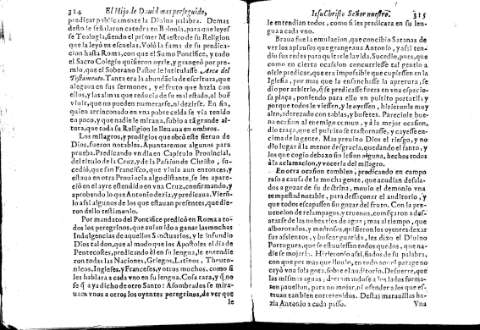 314 El Hijo de David mas perseguido,
predicar publicamente la Divina palabra. Demas
desto se señalaron catedra en Bolonia, para que leyesse
Teologia, siendo el primer Maestro de su Religion
que la leyó en escuelas. Voló la fama de su predicacion
hasta Roma, con que el Sumo Pontifice, y todo
el Sacro Colegio quisieron oyrle, y grangeó por premio,
que el Soberano Pastor le intitulasse Arca del
Testamento. Tanta era la abundancia de escritura, que
alegava en sus sermones, y el fruto que hazia con
ellos, y las almas que reducia de su mal estado, al buẽ
viole, que no pueden numerarse, ni dezirse. En fin,
quien arrinconado en una pobre celda se vio tenido
en poco, y que nadie le mirava, subio a grande altura,
que toda su Religion se llenava en ombros.
Los milagros, y prodigios que obró este siervo de
Dios, fueron notables. Apuntaremos algunos para
prueva. Predicando un dia en Capitulo Provincial,
del titulo de la Cruz, y de la Passion de Christo, sucedió,
que san Francisco, que vivia aun entonces, y
estava en otra Provincia algo distante, se les aparecio
en el ayre estendido en una Cruz, confirmando, y
aprobando lo que Antonio dezia, y predicava. Vieronlo
assi algunos de los que estavan presentes, que dieron
dello testimonio.
Por mandato del Pontifice predicó en Roma a todos
los peregrinos, que avian ido a ganar las muchas
Indulgencias de aquellos Santuarios, y le infundio
Dios tal don, que al modo que los Apostoles el dia de
Pentecostes, predicando él en su lengua, le entendieron
todas las Naciones, Griegos, Latinos, Theutonicos,
Ingleses, y Franceses, y otras muchas, como si
les hablara a cada uno en su lengua. Cosa rara, y q̃ no
se q̃ aya dicho de otro Santo: Assombrados se miravan
unos a otros los oyentes peregrinos, de ver que
le
Iesu Christo Señor nuestro. 315
le entendian todos, como si les predicara en su lengua
a cada uno.
Brava fue la emulacion, que concibio Satanas de
ver los aplausos que grangeava Antonio, y assi tendio
sus redes para quitarle la vida. Sucedio, pues, que
como en cierta ocasion concurriesse tal gentio a
oirle predicar, que era impossible que cupiessen en la
Iglesia, por mas que la ensanchasse la apretura, se
dio por arbitrio, q̃ se predicasse fuera en una espaciosa
plaça, poniendo para ello un pulpito portatil y
porque todos le viessen, y le oyessen, hizieronle muy
alto, aderezado con tablas, y bofetes. Pareciole buena
ocasion al enemigo comun, y a la mejor ocasion,
dio traça, que el pulpito se trastornasse, y cayesse encima
de la gente. Mas previno Dios el riesgo, y no
dio lugar à la menor desgracia, quedando entero, y
los que cogio debaxo sin lesion alguna, hechos todos
à la aclamacion, y vozeria del milagro.
En otra ocasion tambien, predicando en campo
raso a causa de la mucha gente, que acudian desalados
a gozar de su doctrina, movio el demonio una
tempestad notable, para dessazonar el auditorio, y
que todos escapassen sin gozar del fruto. Con la prevencion
de relampagos, y truenos, comẽçaron a desatarse
de las nubes rios de agua; mas al tiempo, que
alborotados, y mohinos, quisieron los oyentes dexar
sus assientos, y buscar guarida, les dixo el Divino
Portugues, que se estuviessen todos quedos, que nadie
se mojaria. Hizieronlo assi, fiados de su palabra,
con que por mas que llovia, en todo el campo no
cayo una sola gota, sobre el auditorio. De suerte, que
las mismas aguas, derramandose a los lados formaron
pavellon, para no mojar, ni ofender a los que estavan
tambien entretenidos. Destas maravillas hazia
Antonio a cada passo.
Una